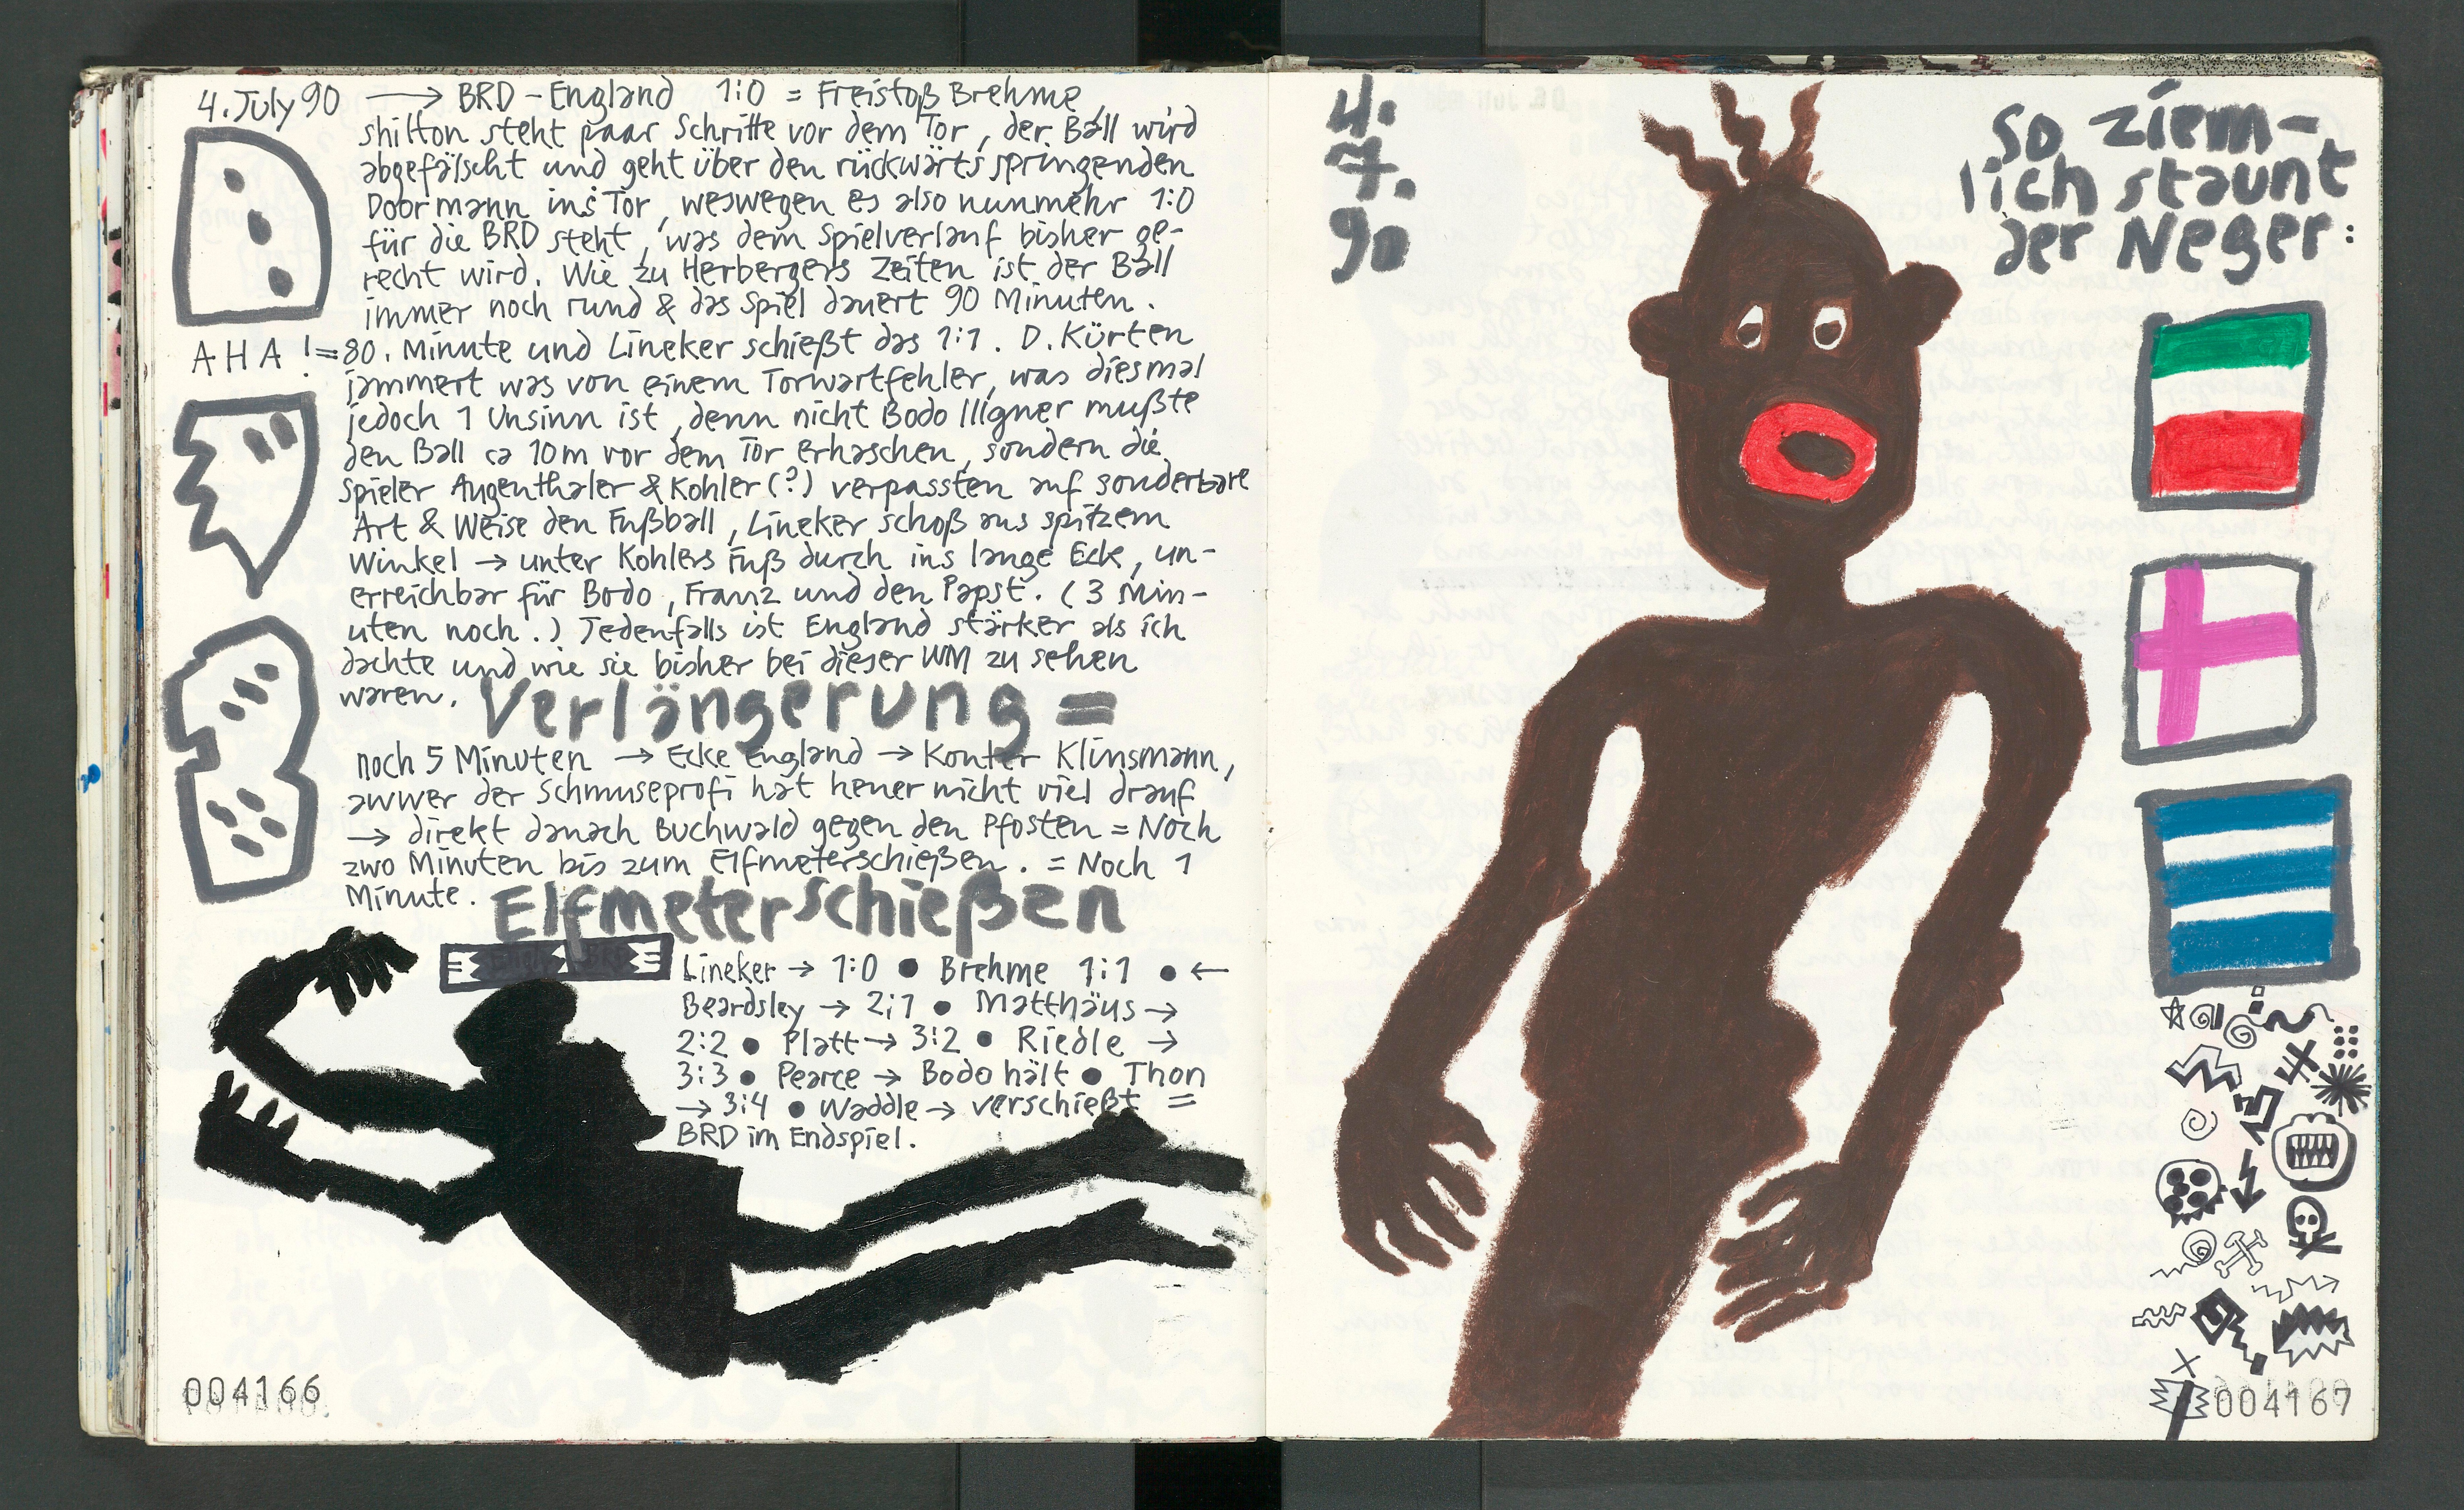 4. July 90 → BRD - England 1:0 = Freistoß Brehme,
shilton steht paar Schritte vor dem Tor, der Ball wird
abgefälscht und geht über den rückwärts springenden
Doormann ins Tor, weswegen es also nunmehr 1:0
für die BRD steht, was dem Spielverlauf bisher ge-
recht wird. Wie zu Herbergers Zeiten ist der Ball
immer noch rund & das Spiel dauert 90 Minuten.
AHA! = 80. Minute und Lineker schießt das 1:1. D. Kürten
jammert was von einem Torwartfehler, was diesmal
jedoch 1 Unsinn ist, denn nicht Bodo Illgner mußte
den Ball ca 10m vor dem Tor erhaschen, sondern die
Spieler Augenthaler & Kohler (?) verpassten auf sonderbare
Art & Weise den Fußball, Lineker schoß aus spitzem
Winkel → unter Kohlers Fuß durch ins lange Eck, un-
erreichbar für Bodo, Franz und den Papst. (3 Min-
uten noch.) Jedenfalls ist England stärker als ich
dachte und wie sie bisher bei dieser WM zu sehen
waren. Verlängerung =
noch 5 Minuten → Ecke England → Konter Klinsmann,
awwer der Schmuseprofi hat heuer nicht viel drauf
→ direkt danach Buchwald gegen den Pfosten = Noch
zwo Minuten bis zum Elfmeterschießen. = Noch 1
Minute. Elfmeterschießen
Engl. - BRD
Lineker → 1:0 ● Brehme 1:1 ● ←
Beardsley → 2:1 ● Matthäus →
2:2 ● Platt → 3:2 ● Riedle →
3:3 ● Pearce → Bodo hält ● Thon
→ 3:4 ● Waddle → verschießt =
BRD im Endspiel.
004166
4.
7.
90
so ziem-
lich staunt
der Neger:
004167